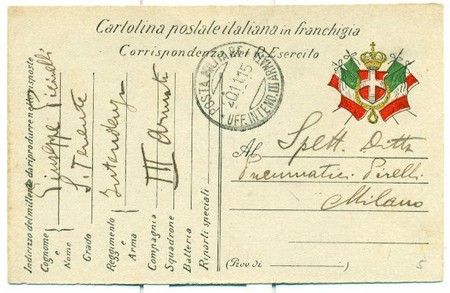 Cartolina postale italiana in franchigia
Corrispondenza del R. Esercito
POSTA MILITARE
20.11.15
UFF. INTEND. III ARMATA
Indirizzo del mittente da riprodurre nelle risposte
Cognome e Nome Giuseppe
Grado S. Tenente
Reggimento e Arma Intendenza
Compagnia III Armata
Squadrone
Batteria
Riparti speciali
Al Spett. Ditta
Pneumatici Pirelli
Milano
(Prov. di )